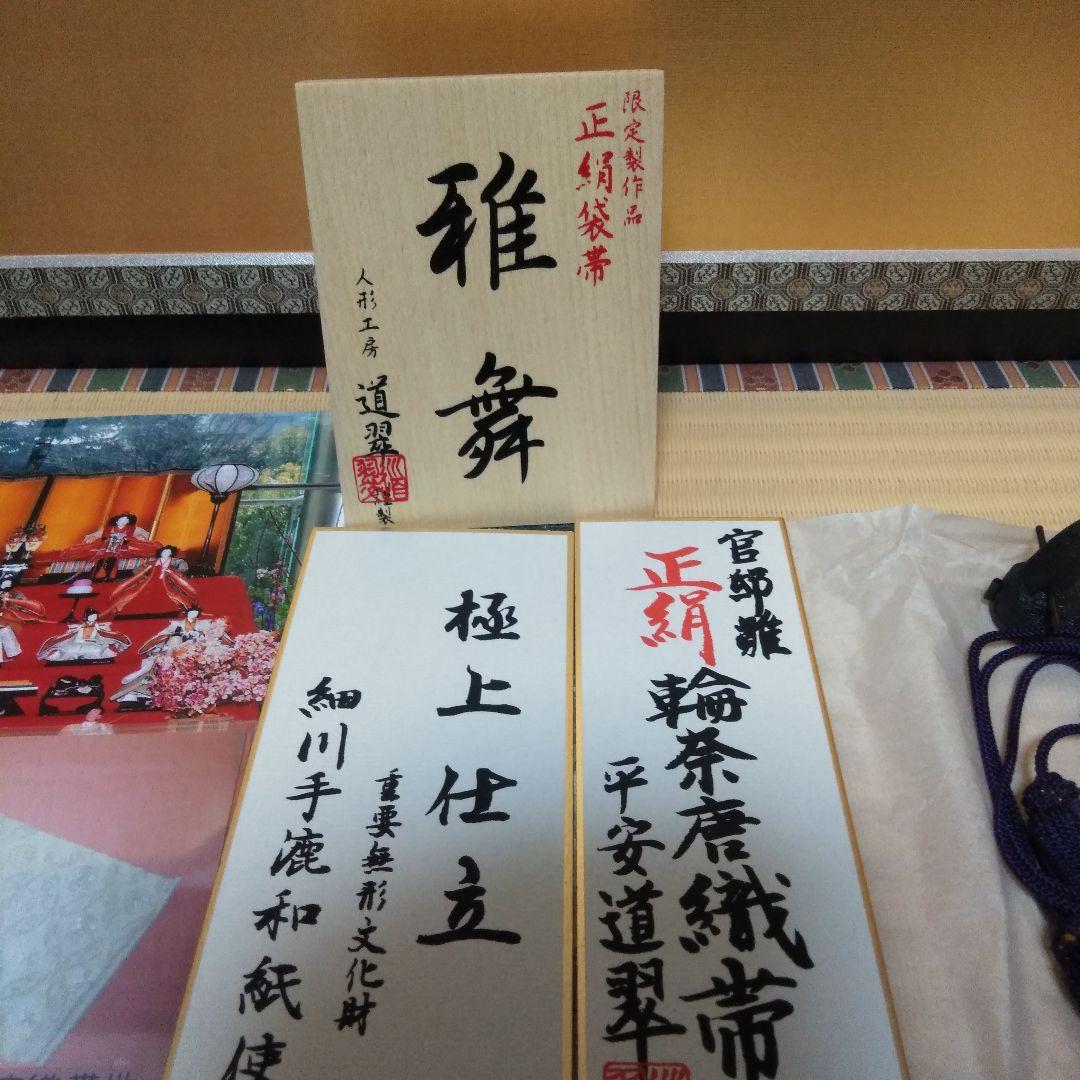 限定製作品
正絹袋帯
雅舞
人形工房 道翠 謹製
官邸雛
正絹
輪奈唐織帯
平安道翠
極上仕立
重要無形文化財
細川手漉和紙使